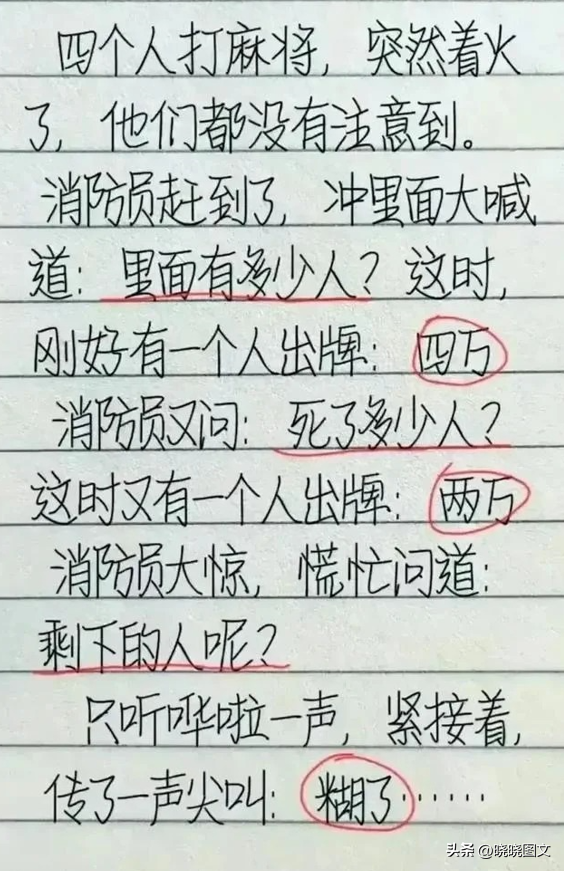 四个人打麻将，突然着火
了，他们都没有注意到。
消防员赶到了，冲里面大喊
道：里面有多少人？这时，
刚好有一个人出牌：四万
消防员又问：死了多少人？
这时又有一个人出牌：两万
消防员大惊，慌忙问道：
剩下的人呢？
只听哗啦一声，紧接着，
传了一声尖叫：糊了······
头条 @晓晓图文